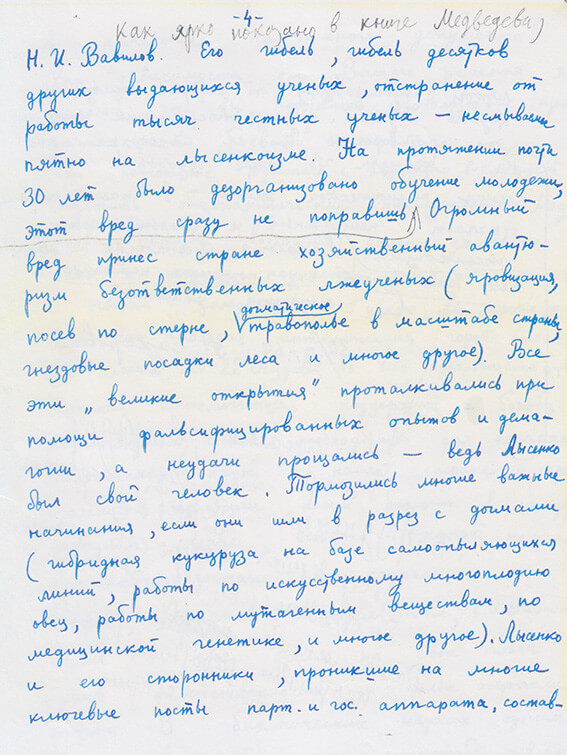 -4-
Как ярко показано в книге Медведева,
Н. И. Вавилов. Его гибель, гибель десятков
других выдающихся ученых, отстранение от
работы тысяч честных ученых – несмываемое
пятно на лысенкоизме. На протяжении почти
30 лет было дезорганизовано обучение молодежи,
этот вред сразу не поправишь. Огромный
вред принес стране хозяйственный авантю-
ризм безответственных лжеученых (яровизация,
догматическое
посев по стерне, травополье в масштабе страны,
гнездовые посадки леса и многое другое). Все
эти „великие открытия" проталкивались при
помощи фальсифицированных опытов и дема-
гогии, а неудачи прощались – ведь Лысенко
был свой человек. Тормозились многие важные
начинания, если они шли в разрез с догмами
(гибридная кукуруза на базе самоопыляющихся
линий, работы по искусственному многоплодию
овец, работы по мутагенным веществам, по
медицинской генетике, и многое другое). Лысенко
и его сторонники, проникшие на многие
ключевые посты парт. и гос. аппарата, состав-